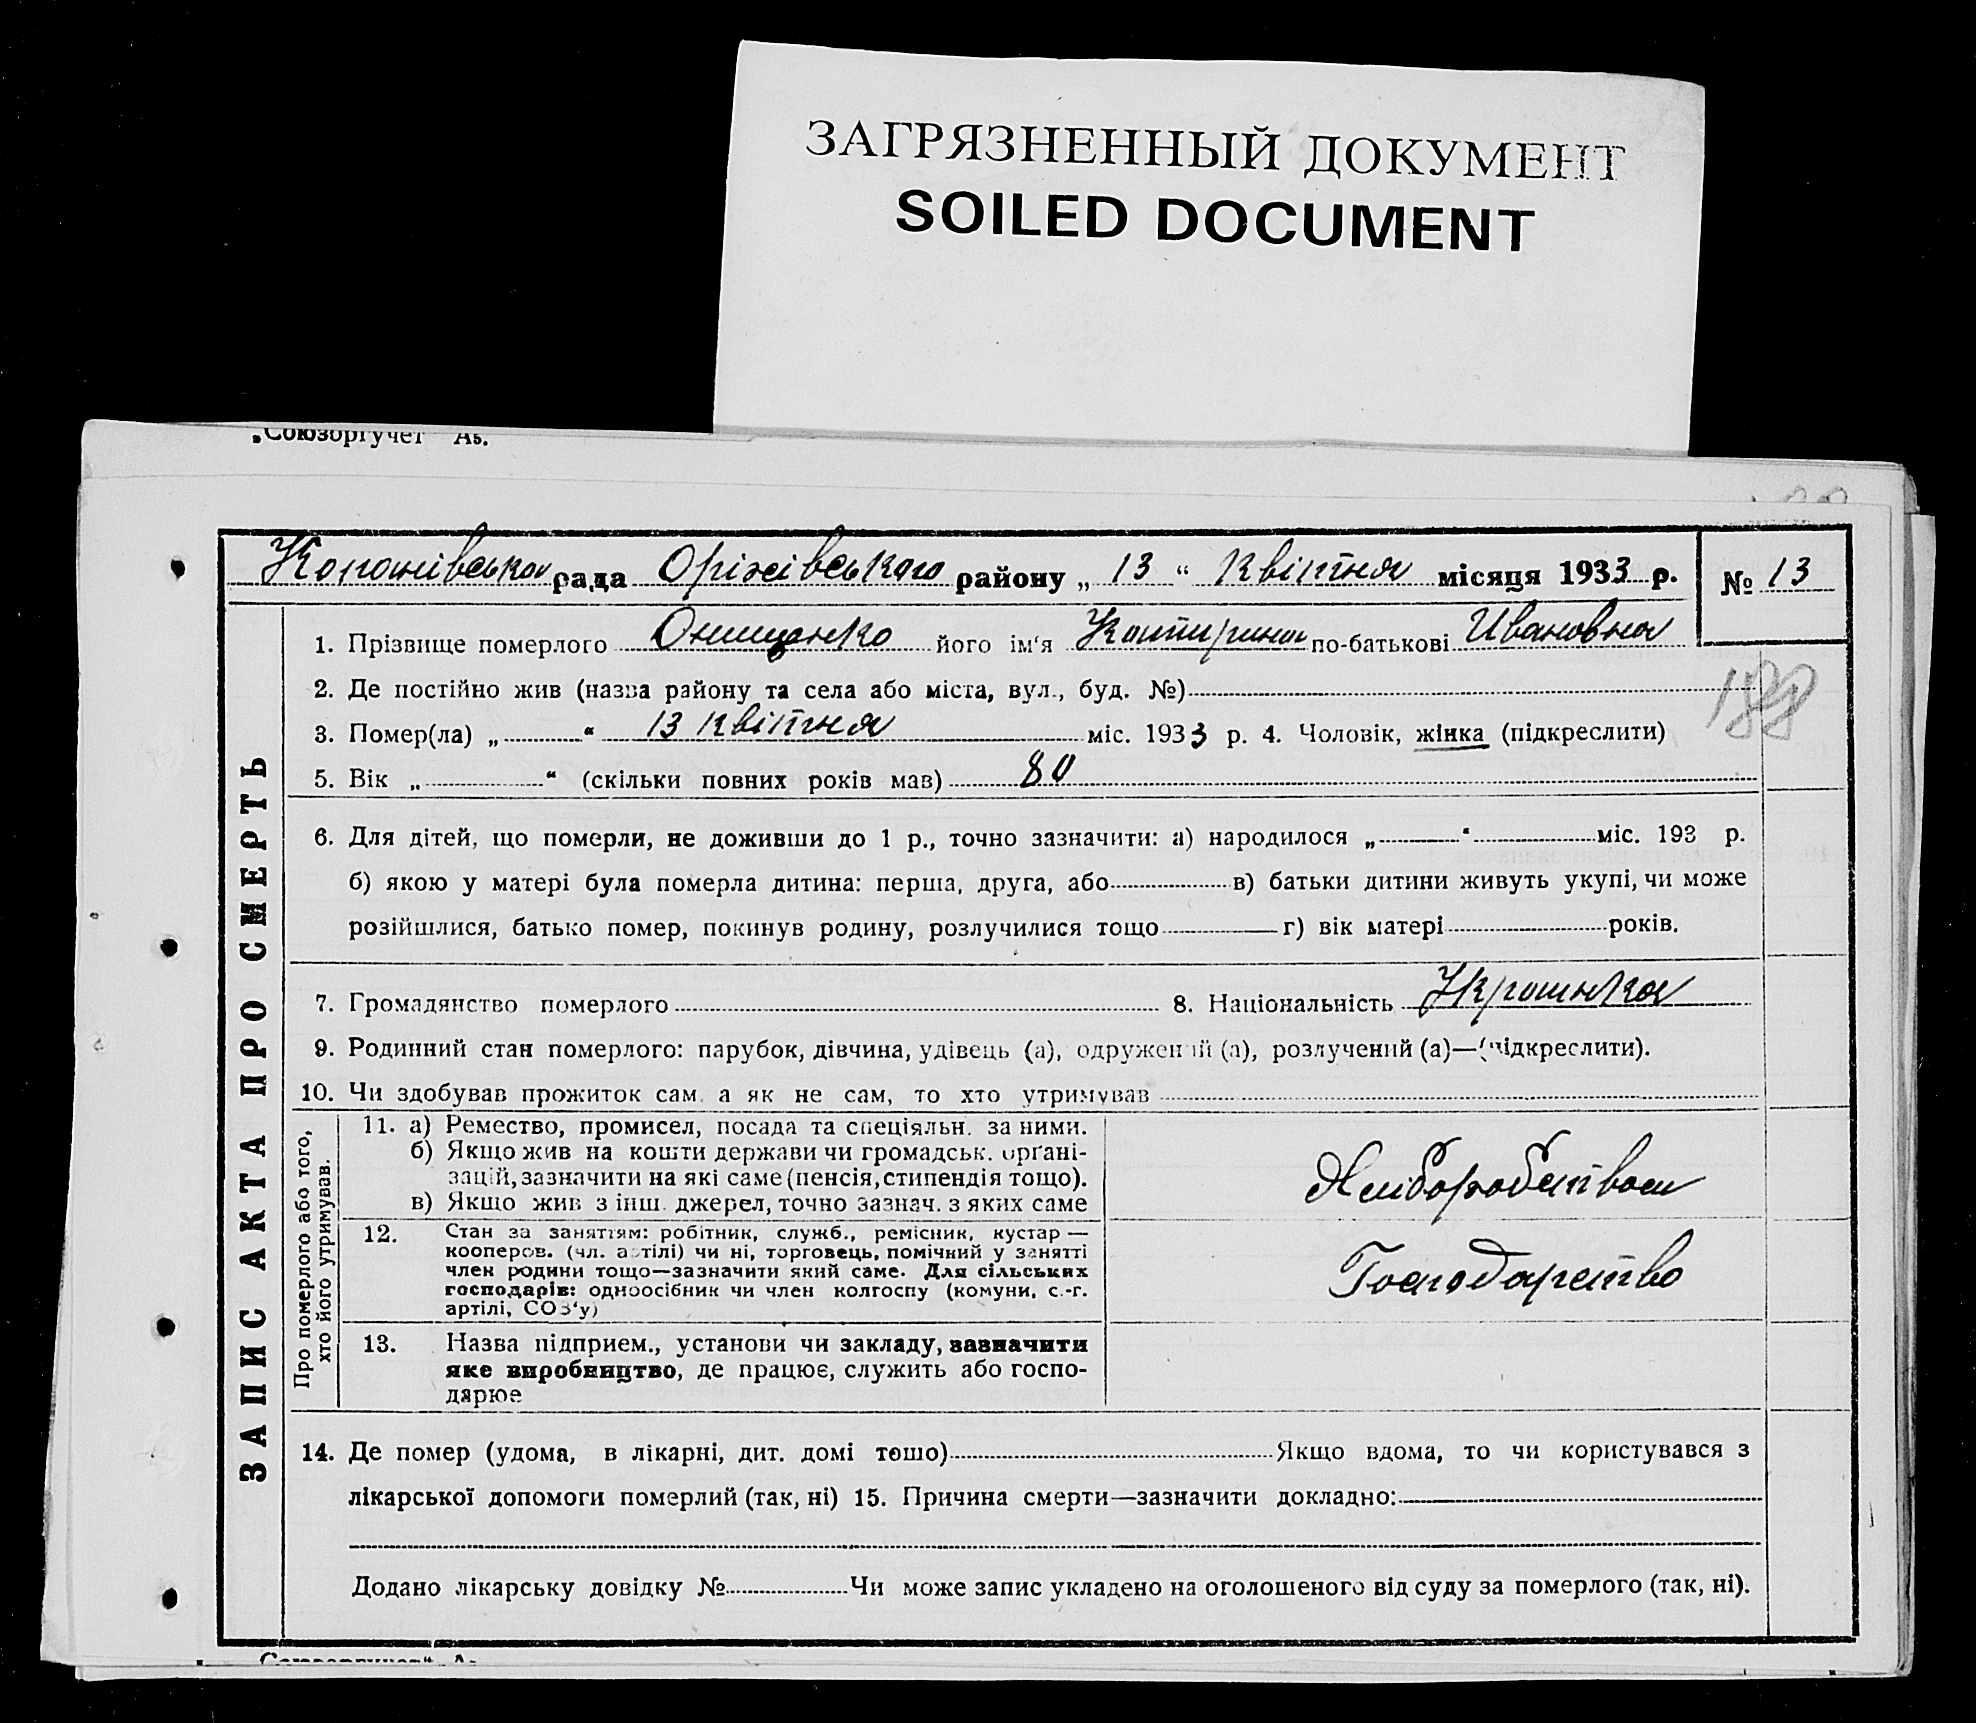 ЗАГРЯЗНЕННЫЙ ДОКУМЕНТ
SOILED DOCUMENT
„Союзоргучет
рада Оріхівського району „ 13 “ Квітня місяця 1933 р. № 13
1. Прізвище померлого Онищенко його ім'я Катирина по-батькові Ивановна
2. Де постійно жив (назва району та села або міста, вул., буд. №)
188
3. Помер(ла) „ “ 13 Квітня міс. 1933 р. 4. Чоловік, жінка (підкреслити)
5. Вік „ “ (скільки повних років мав) 80
6. Для дітей, що померли, не доживши до 1 р., точно зазначити: а) народилося „ “ міс. 193 р.
б) якою у матері була померла дитина: перша, друга, або в) батьки дитини живуть укупі, чи може
розійшлися, батько помер, покинув родину, розлучилися тощо г) вік матері років.
7. Громадянство померлого 8. Національність Украинка
9. Родинний стан померлого: парубок, дівчина, удівець (а), одружений (а), розлучений (а)—(підкреслити).
10. Чи здобував прожиток сам, а як не сам, то хто утримував
ЗАПИС АКТА ПРО СМЕРТЬ
Про померлого або того,
хто його утримував.
11. а) Ремество, промисел, посада та спеціяльн. за ними.
б) Якщо жив на кошти держави чи громадськ. орґані-
зацій, зазначити на які саме (пенсія, стипендія тощо).
в) Якщо жив з інш. джерел, точно зазнач. з яких саме
Хлиборобством
12. Стан за заняттям: робітник, служб., ремісник, кустар —
кооперов. (чл. артілі) чи ні, торговець, помічний у занятті
член родини тощо—зазначити який саме. Для сільських
господарів: одноосібник чи член колгоспу (комуни, с.-г.
артілі, СОЗ'у)
Господарство
13. Назва підприєм., установи чи закладу, зазначити
яке виробництво, де працює, служить або госпо-
дярює
14. Де помер (удома, в лікарні, дит. домі тошо) Якщо вдома, то чи користувався з
лікарської допомоги померлий (так, ні) 15. Причина смерти—зазначити докладно:
Додано лікарську довідку № Чи може запис укладено на оголошеного від суду за померлого (так, ні).